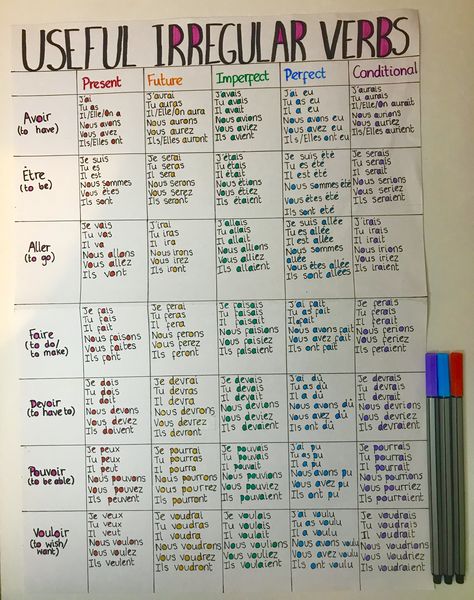 USEFUL IRREGULAR VERBS
Present
Future
Imperfect
Perfect
Conditional
Avoir
(to have)
J'ai
Tu as
Il/Elle/On a
Nous avons
Vous avez
Ils/Elles ont
J'aurai
Tu auras
Il/Elle/On aura
Nous aurons
Vous aurez
Ils/Elles auront
J'avais
Tu avais
Il avait
Nous avions
Vous aviez
Ils avient
J'ai eu
Tu as eu
Il a eu
Nous avons eu
Vous avez eu
Ils/Elles ont eu
J'aurais
Tu aurais
Il/Elle/On aurait
Nous aurions
Vous auriez
Ils/Elles aurient
Être
(to be)
Je suis
Tu es
Il est
Nous sommes
Vous êtes
Ils sont
Je serai
Tu seras
Il sera
Nous serons
Vous serez
Ils seront
J'étais
Tu étais
Il était
Nous étions
Vous étiez
Ils étaient
Je suis été
Tu es été
Il est été
Nous sommes été
Vous êtes été
Ils sont été
Je serais
Tu serais
Il serait
Nous serions
Vous seriez
Ils seraient
Aller
(to go)
Je vais
Tu vas
Il va
Nous allons
Vous allez
Ils vont
J'irai
Tu iras
Il ira
Nous irons
Vous irez
Ils iront
J'allais
Tu allais
Il allait
Nous allions
Vous alliez
Ils allaient
Je suis allée
Tu es allée
Il est allée
Nous sommes
allée
Vous êtes allée
Ils sont allées
J'irais
Tu irais
Il irait
Nous irions
Vous iriez
Ils iraient
Faire
(to do/
to make)
Je fais
Tu fais
Il fait
Nous faisons
Vous faites
Ils font
Je ferai
Tu feras
Il fera
Nous ferons
Vous ferez
Ils feront
Je faisais
Tu faisais
Il faisait
Nous faisions
Vous faisiez
Ils faisaient
J'ai fait
Tu as fait
Il a fait
Nous avons fait
Vous avez fait
Ils ont fait
Je ferais
Tu ferais
Il ferait
Nous ferions
Vous feriez
Ils feraient
Devoir
(to have to)
Je dois
Tu dois
Il doit
Nous devons
Vous devez
Ils doivent
Je devrai
Tu devras
Il devra
Nous devrons
Vous devrez
Ils devront
Je devais
Tu devais
Il devait
Nous devions
Vous deviez
Ils devaient
J'ai dû
Tu as dû
Il a dû
Nous avons dû
Vous avez dû
Ils ont dû
Je devrais
Tu devrais
Il devrait
Nous devrions
Vous devriez
Ils devraient
Pouvoir
(to be able)
Je peux
Tu peux
Il peut
Nous pouvons
Vous pouvez
Ils peuvent
Je pourrai
Tu pourras
Il pourra
Nous pourrons
Vous pourrez
Ils pourront
Je pouvais
Tu pouvais
Il pouvait
Nous pouvions
Vous pouviez
Ils pouvaient
J'ai pu
Tu as pu
Il a pu
Nous avons pu
Vous avez pu
Ils ont pu
Je pourrais
Tu pourrais
Il pourrait
Nous pourrions
Vous pourriez
Ils pourraient
Vouloir
(to wish/
want)
Je veux
Tu veux
Il veut
Nous voulons
Vous voulez
Ils veulent
Je voudrai
Tu voudras
Il voudra
Nous voudrons
Vous voudrez
Ils voudront
Je voulais
Tu voulais
Il voulait
Nous voulions
Vous vouliez
Ils voulaient
J'ai voulu
Tu as voulu
Il a voulu
Nous avons voulu
Vous avez voulu
Ils ont voulu
Je voudrais
Tu voudrais
Il voudrait
Nous voudrions
Vous voudriez
Ils voudraient